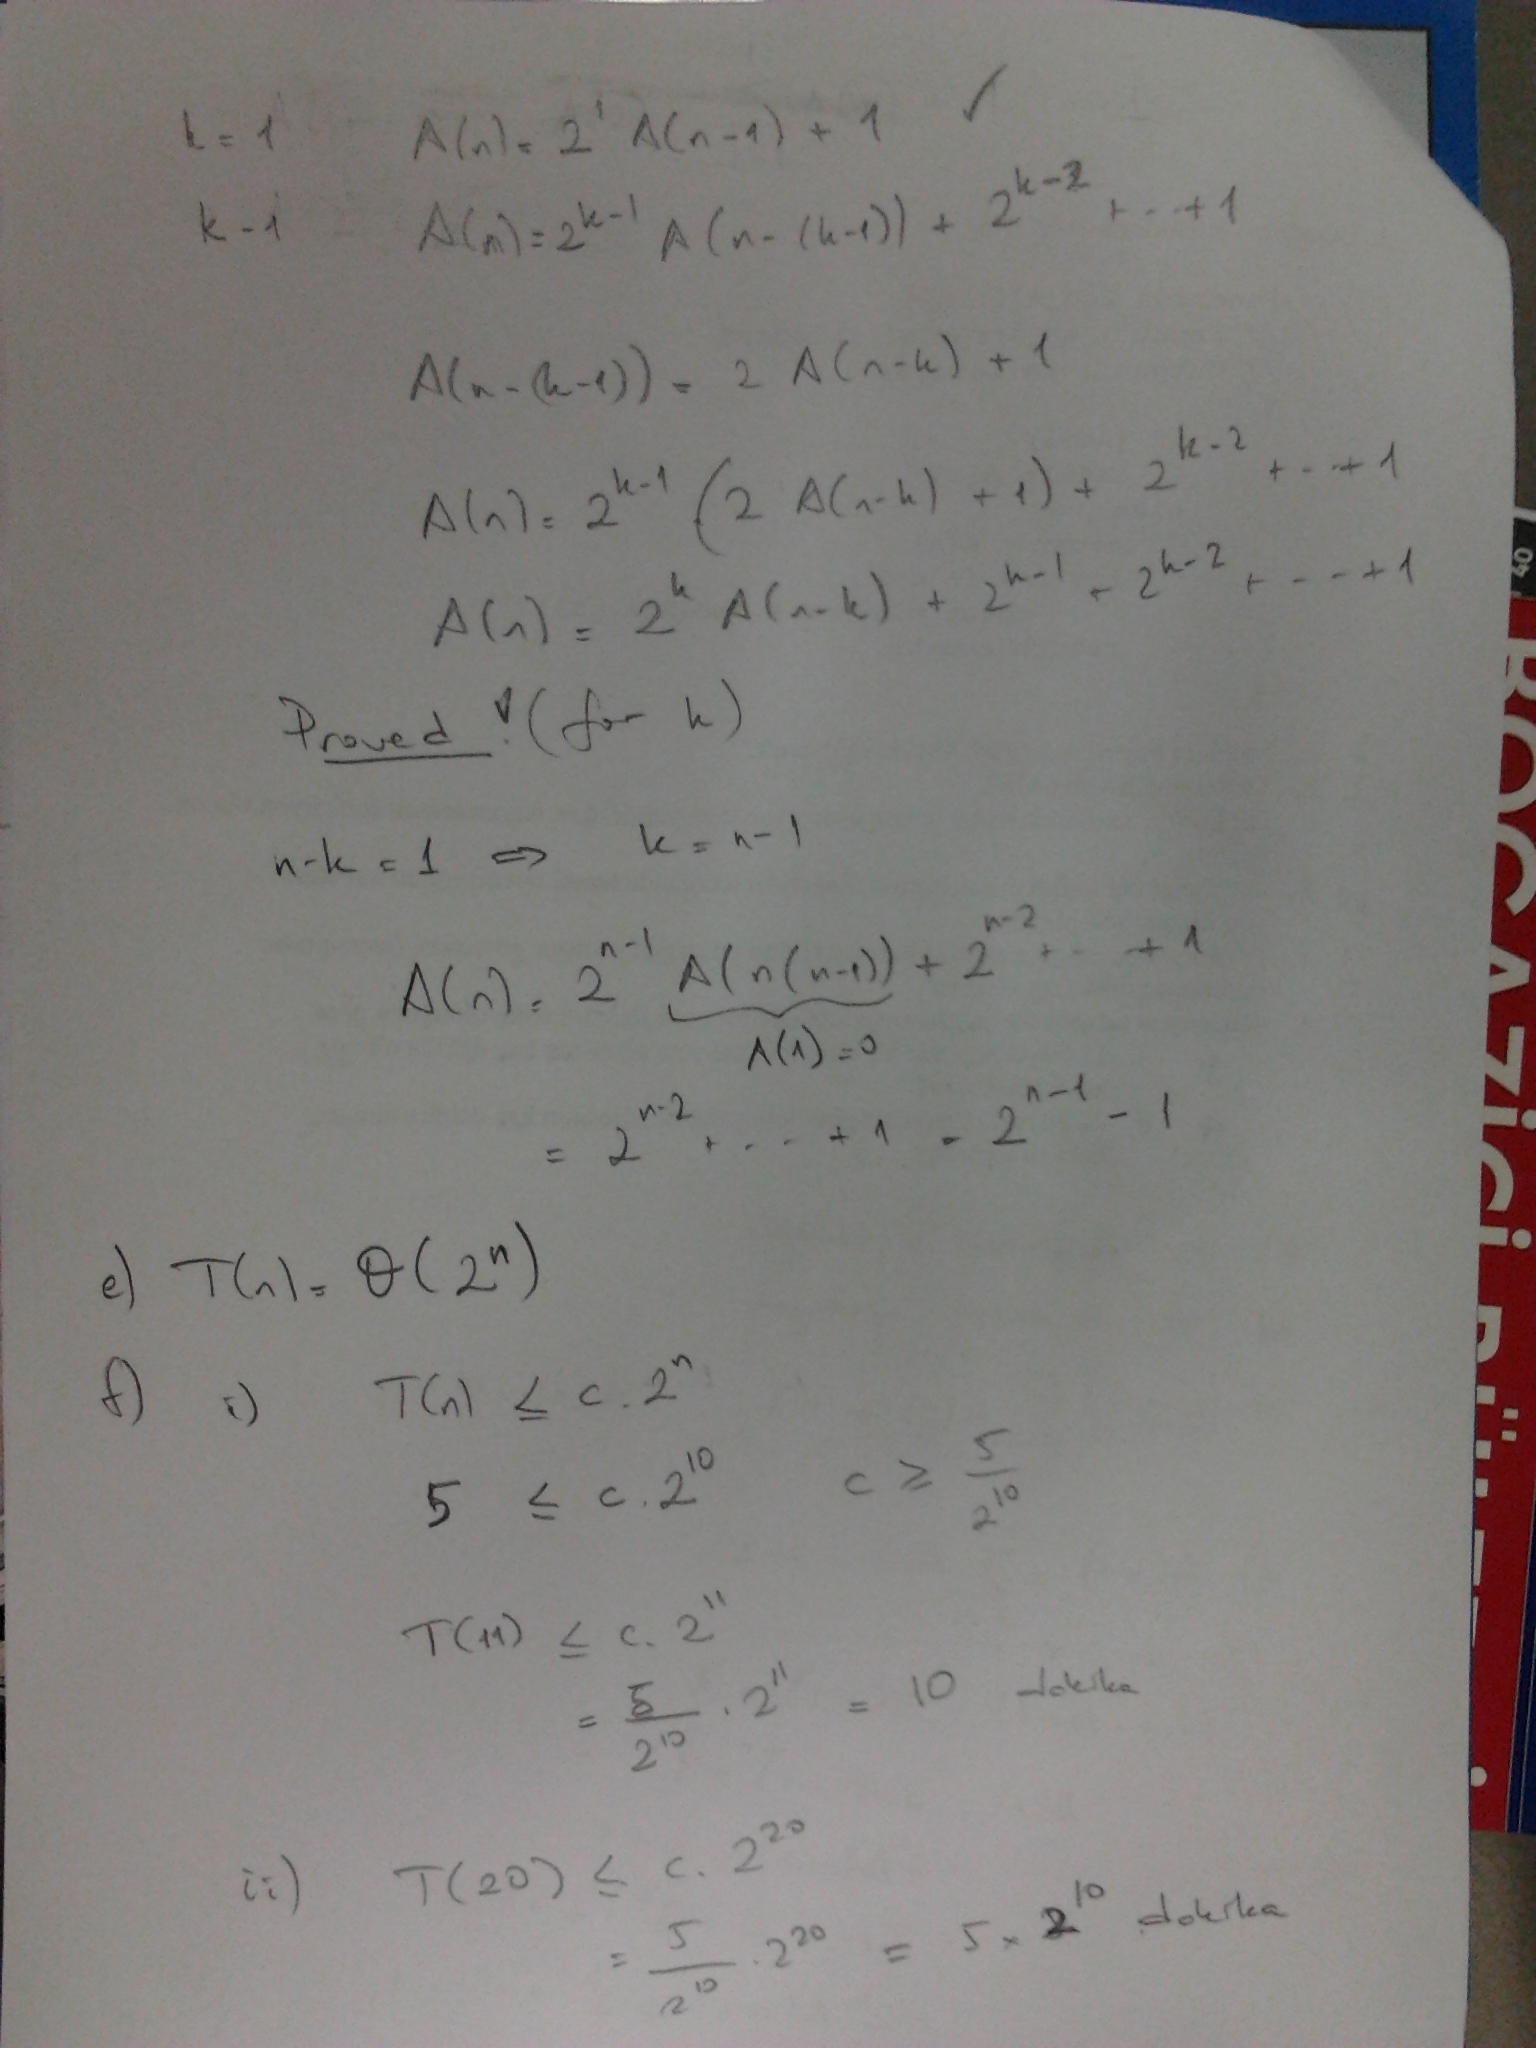 k=1 A(n)=2^1 A(n-1)+1 ✓
k-1 A(n)=2^{k-1} A(n-(k-1))+2^{k-2}+...+1
A(n-(k-1))=2 A(n-k)+1
A(n)=2^{k-1} (2 A(n-k)+1)+2^{k-2}+...+1
A(n)=2^k A(n-k)+2^{k-1}+2^{k-2}+...+1
Proved! (for k)
n-k=1 ⇒ k=n-1
A(n)=2^{n-1} A(n(n-1))+2^{n-2}+...+1
A(1)=0
=2^{n-2}+...+1=2^{n-1}-1
e) T(n)=Θ(2^n)
f) i) T(n) ≤ c.2^n
5 ≤ c.2^{10} c ≥ 5/2^{10}
T(11) ≤ c.2^{11}
= 5/2^{10} . 2^{11} = 10 dakika
ii) T(20) ≤ c.2^{20}
= 5/2^{10} . 2^{20} = 5x2^{10} dakika
40